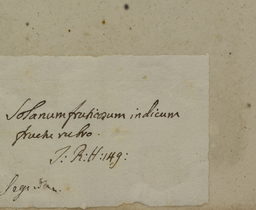 Solanum fruticosum indicum
fructu rubro.
I: R: H: 149: